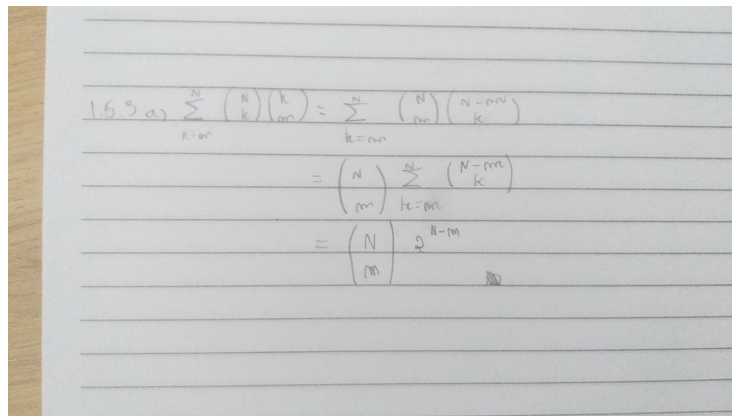 1.5.9 a) \sum_{k=m}^{N} \binom{N}{k} \binom{k}{m} = \sum_{k=m}^{N} \binom{N}{m} \binom{N-m}{k}
= \binom{N}{m} \sum_{k=m}^{N} \binom{N-m}{k}
= \binom{N}{m} 2^{N-m}